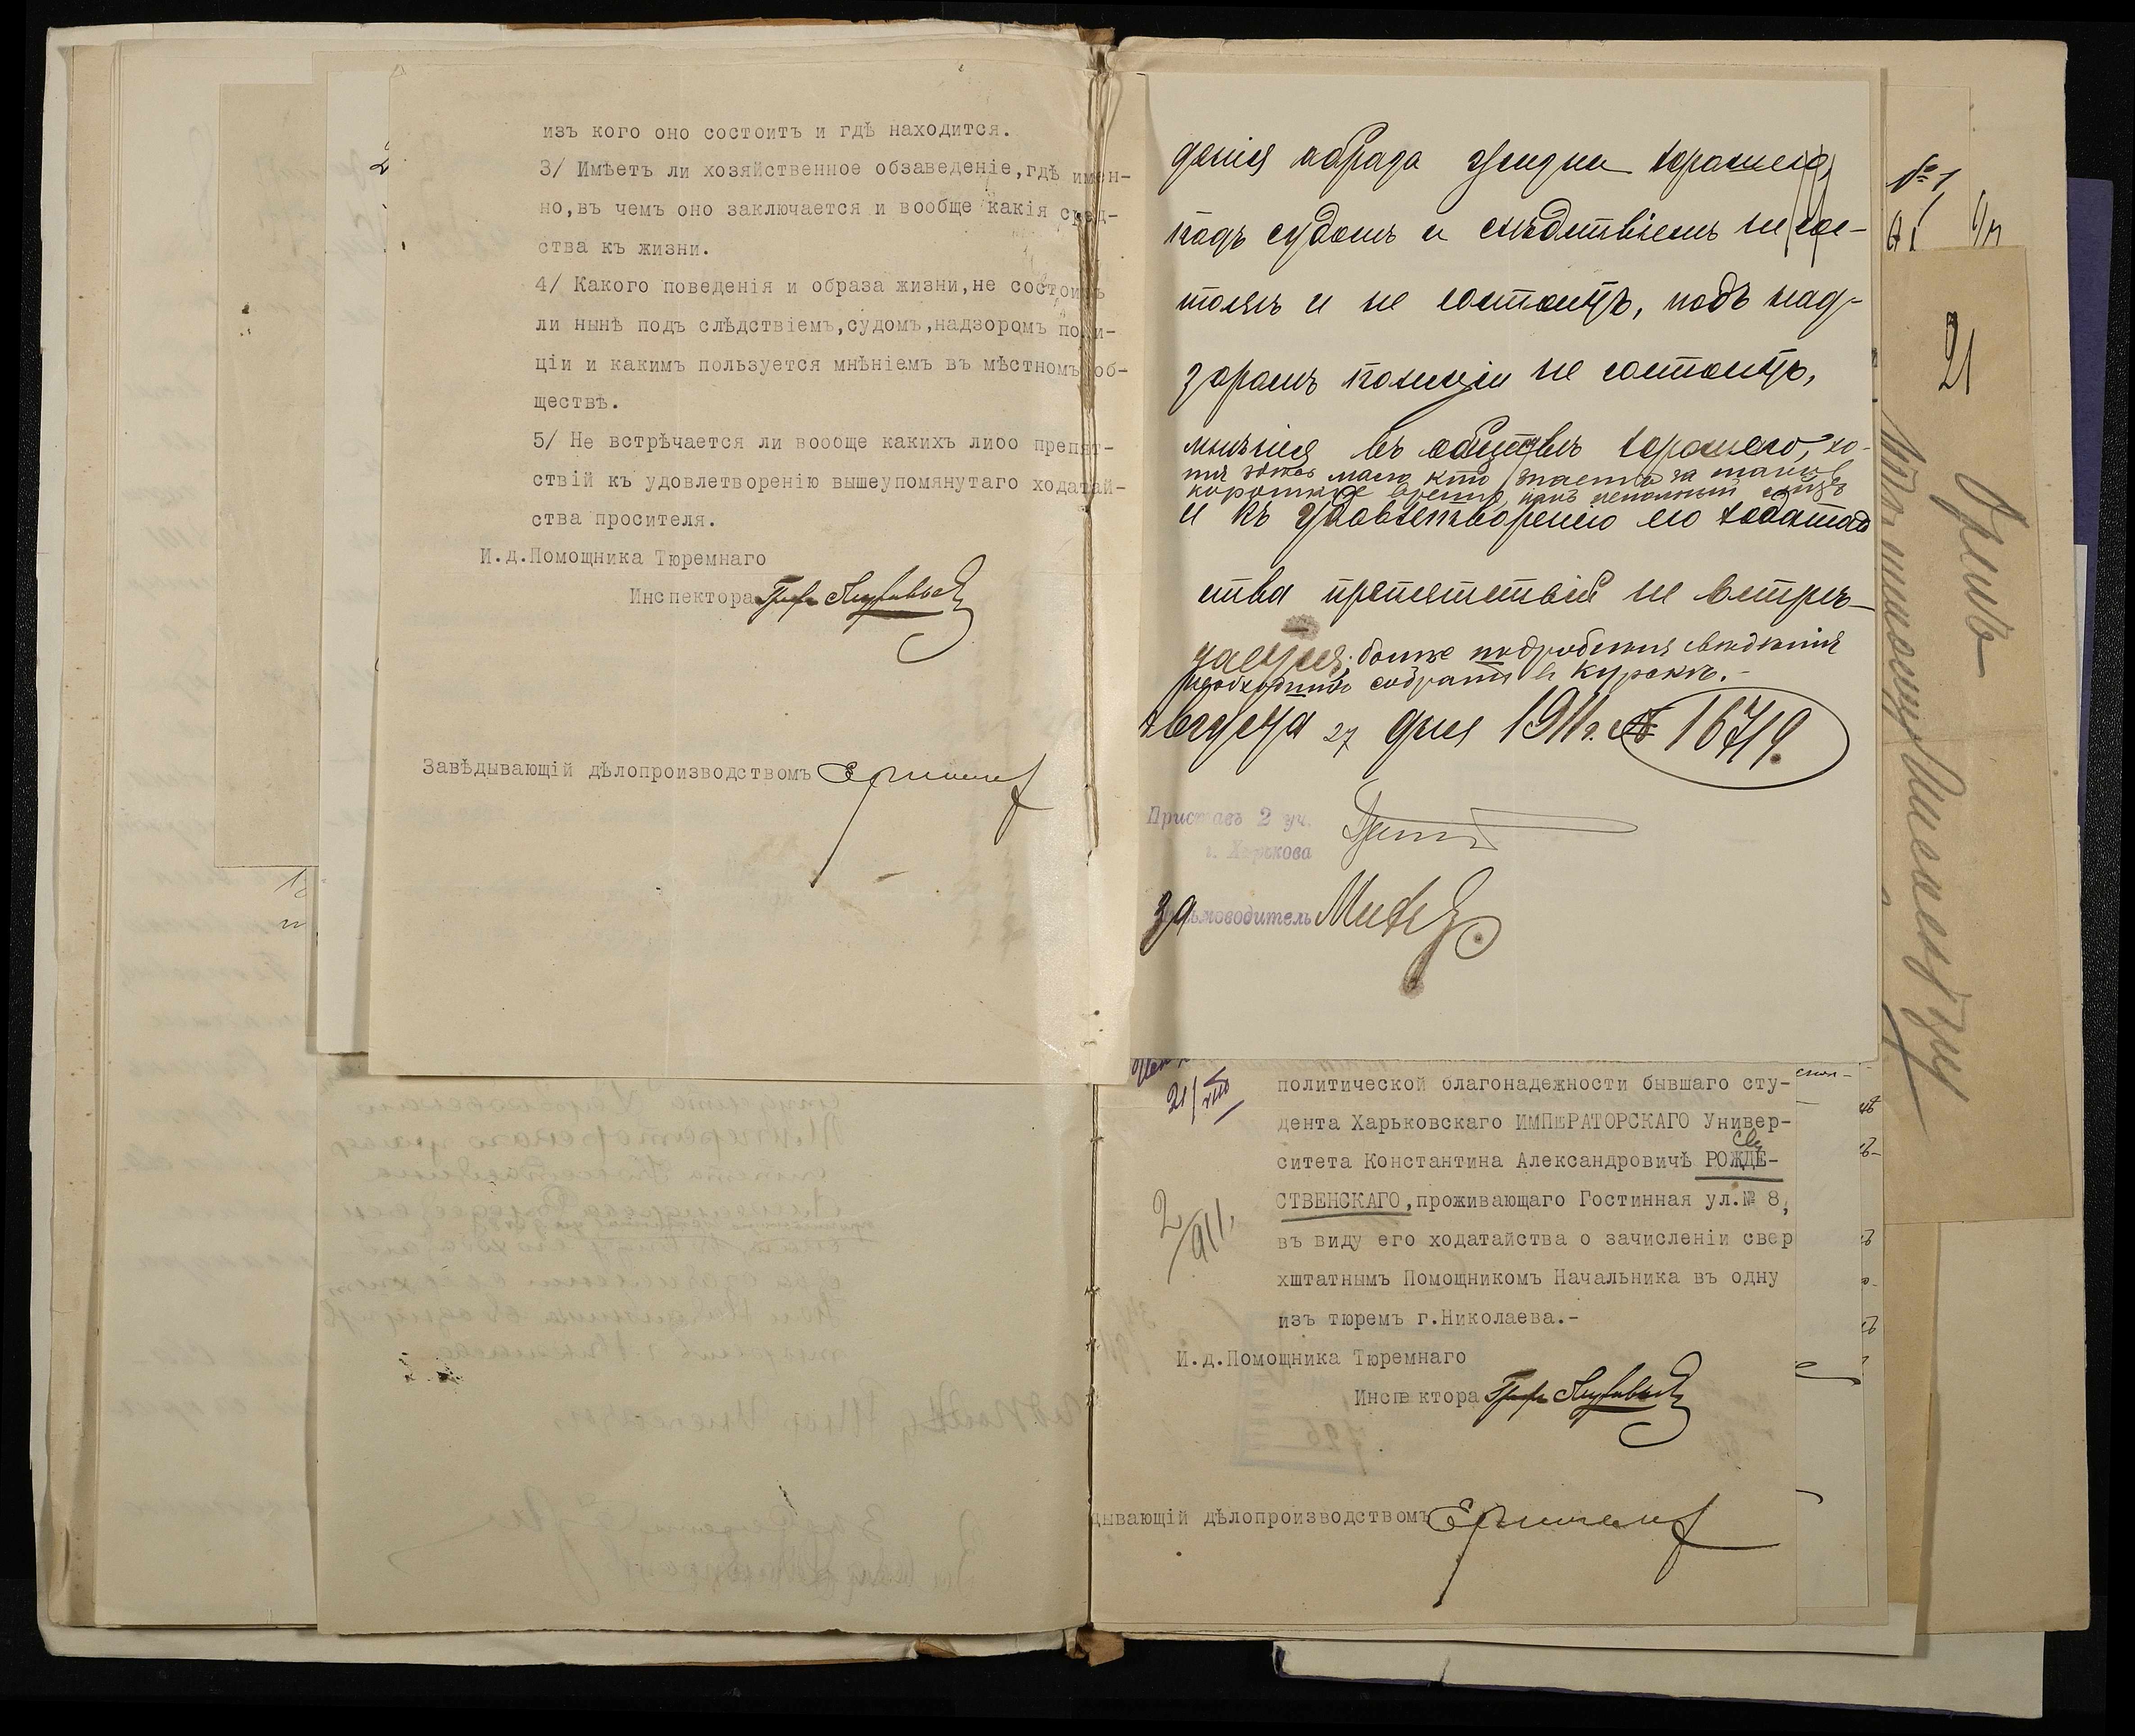 изъ кого оно состоитъ и гдѣ находится.
3/ Имѣетъ ли хозяйственное обзаведеніе,гдѣ имен-
но,въ чемъ оно заключается и вообще какія сред-
ства къ жизни.
4/ Какого поведенія и образа жизни,не состоитъ
ли нынѣ подъ слѣдствіемъ,судомъ,надзоромъ поли-
ціи и какимъ пользуется мнѣніемъ въ мѣстномъ об-
ществѣ.
5/ Не встрѣчается ли вообще какихъ либо препят-
ствій къ удовлетворенію вышеупомянутаго ходатай-
ства просителя.
И.д.Помощника Тюремнаго
Инспектора
Завѣдывающій дѣлопроизводствомъ
денія образа жизни хорошаго,
подъ судомъ и слѣдствіемъ не сос-
тоялъ и не состоитъ, подъ над-
зоромъ полиціи не состоитъ,
мнѣнія въ обществѣ хорошаго, хо-
тя здѣсь мало кто знаетъ за такое
короткое время,
и къ удовлетворенію его ходатай
ства препятствій не встрѣ-
чается; болѣе подробныя свѣдѣнія
необходимо собрать в Курскѣ.-
Августа 27 дня 1911 г. № 16719.
Приставъ 2 уч.
г. Харькова
За Письмоводитель
21/VIII
политической благонадежности бывшаго сту-
дента Харьковскаго ИМПЕРАТОРСКАГО Универ-
ситета Константина Александровичѣ РОЖДЕ-
СТВЕНСКАГО,проживающаго Гостинная ул.№ 8,
въ виду его ходатайства о зачисленіи свер
хштатнымъ Помощникомъ Начальника въ одну
изъ тюремъ г.Николаева.-
2/911.
И.д.Помощника Тюремнаго
Инспектора
дывающій дѣлопроизводствомъ
№ 1
21